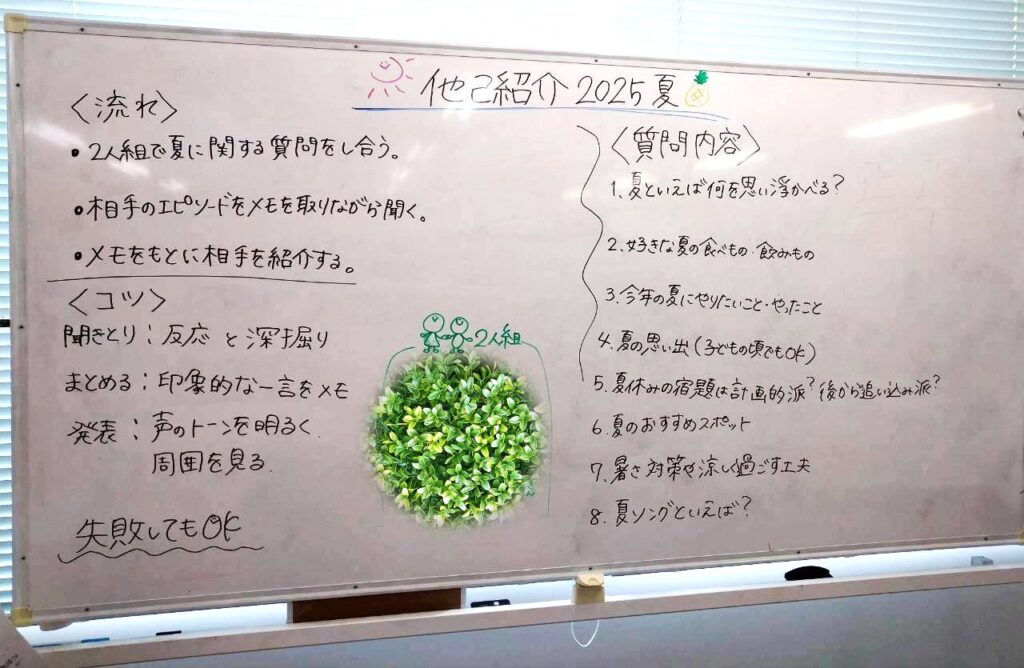 他己紹介 2025夏
〈流れ〉
・2人組で夏に関する質問をし合う。
・相手のエピソードをメモを取りながら聞く。
・メモをもとに相手を紹介する。
〈コツ〉
聞きとり：反応と深掘り
まとめる：印象的な一言をメモ
発表：声のトーンを明るく
周囲を見る.
失敗してもOK
2人組
〈質問内容〉
1.夏といえば何を思い浮かべる？
2.好きな夏の食べもの・飲みもの
3.今年の夏にやりたいこと・やったこと
4.夏の思い出(子どもの頃でもOK)
5.夏休みの宿題は計画的派？後から追い込み派？
6.夏のおすすめスポット
7.暑さ対策や涼しく過ごす工夫
8.夏ソングといえば？